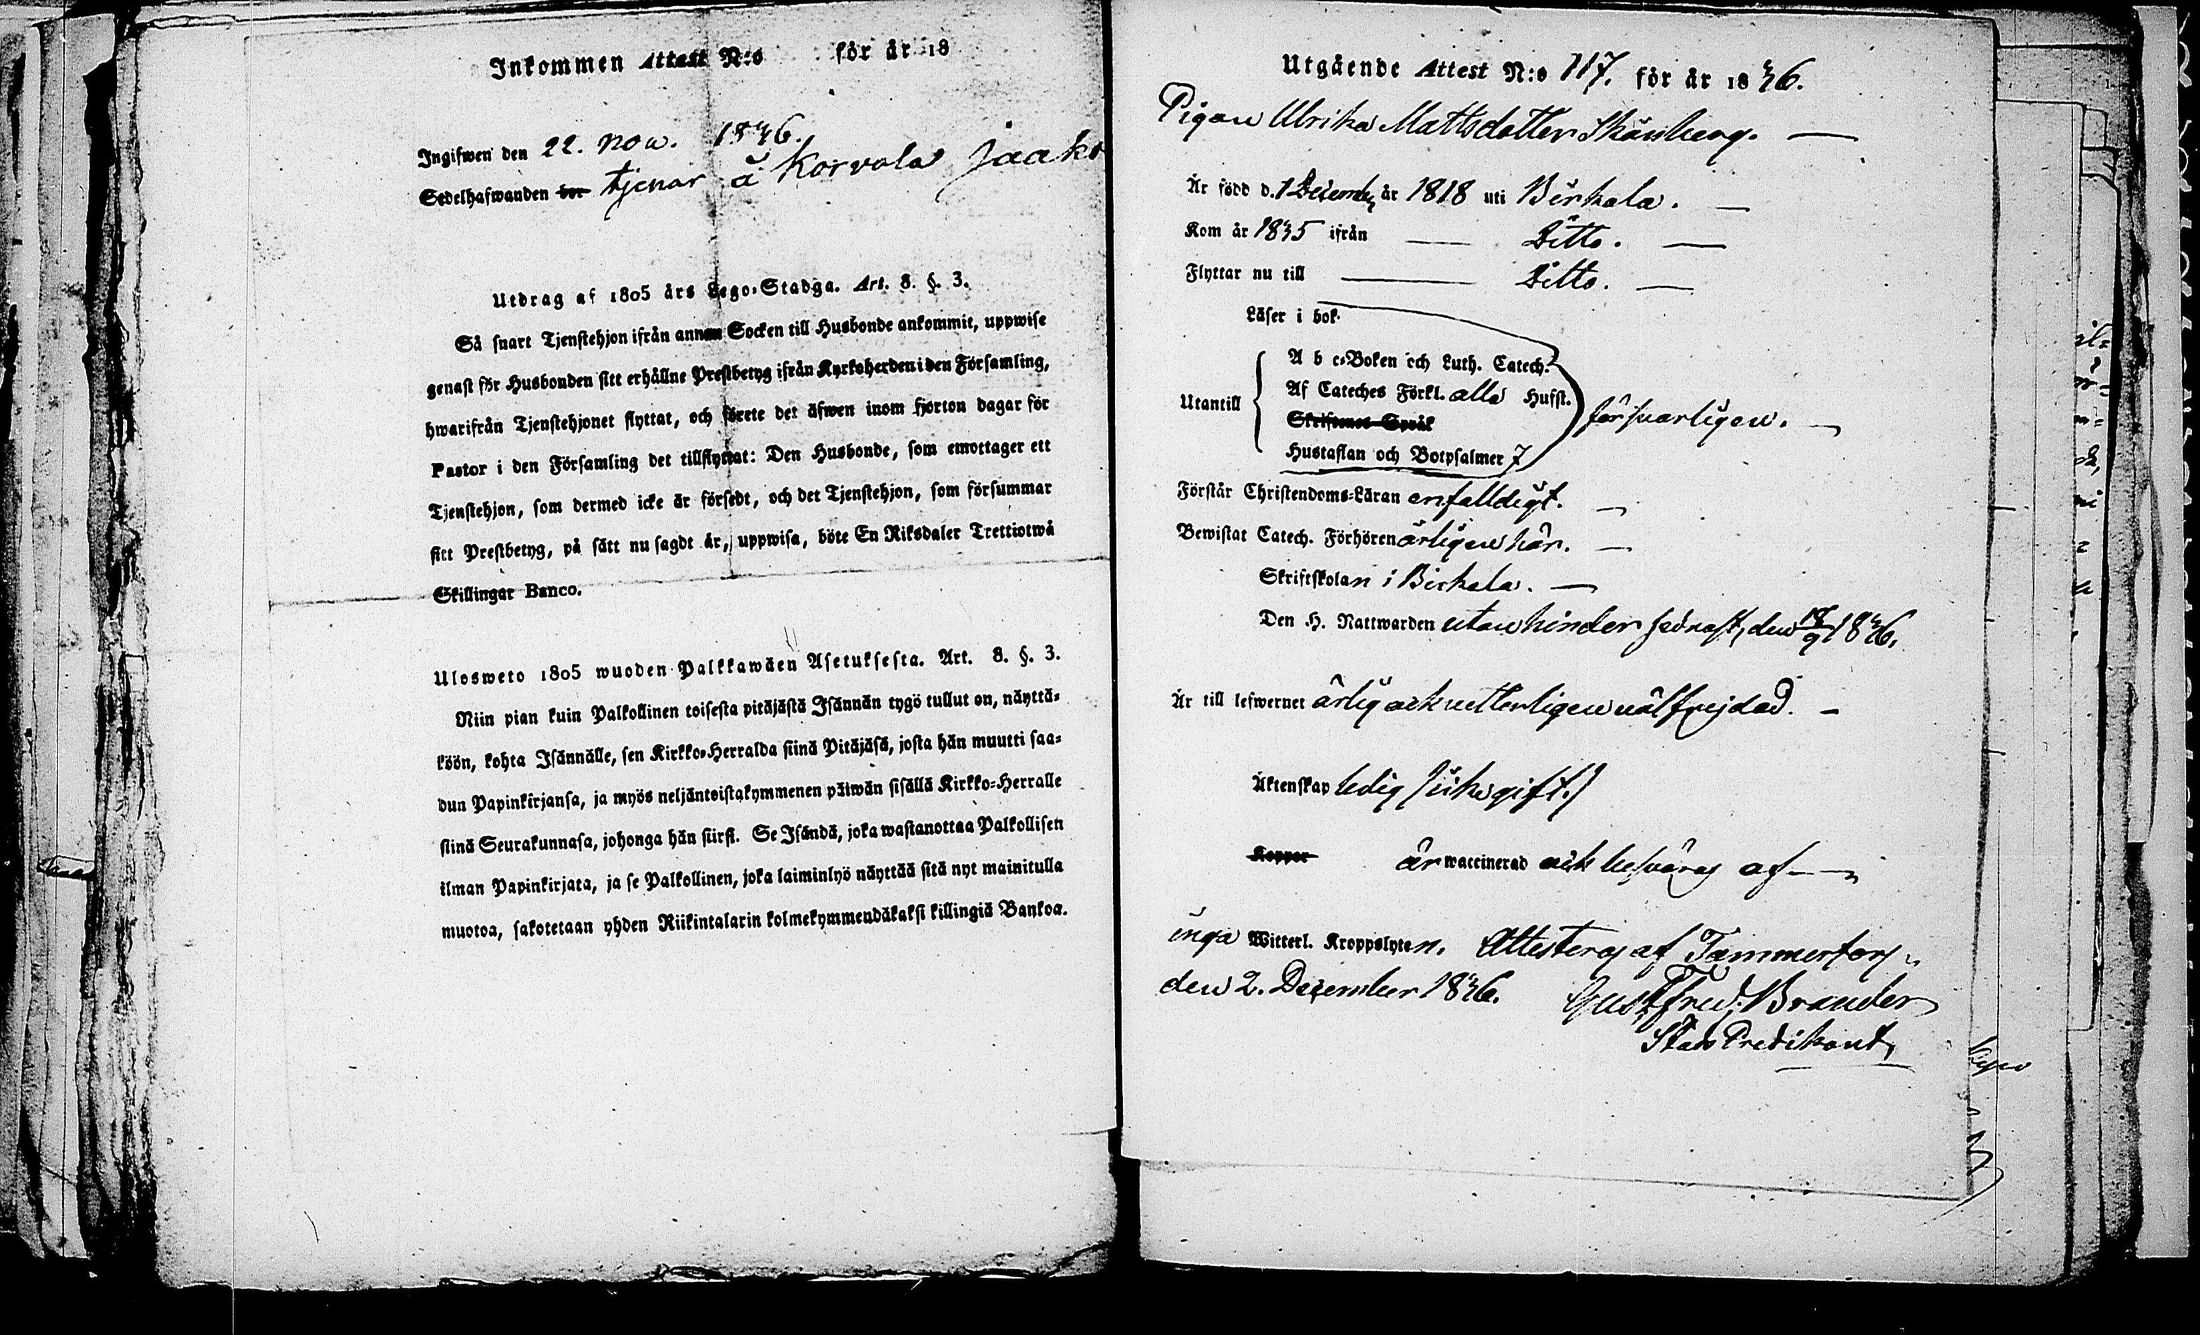 Inkommen Attest N:o för år 18
Ingifwen den 22. Nov. 1836.
Sedelhafwanden bor tjenar å Korvola Jaako
Utdrag af 1805 års Lego-Stadga. Art. 8. §. 3.
Så snart Tjenstehjon ifrån annan Socken till Husbonde ankommit, uppwise
genast för Husbonden sitt erhållne Prestbetyg ifrån Kyrkoherden i den Församling,
hwarifrån Tjenstehjonet flyttat, och förete det äfwen inom fjorton dagar för
Pastor i den Församling det tillflyttat: Den Husbonde, som emottager ett
Tjenstehjon, som dermed icke är försedt, och det Tjenstehjon, som försummar
sitt Prestbetyg, på sätt nu sagdt är, uppwisa, böte En Riksdaler Trettiotwå
Skillingar Banco.
Ulosweto 1805 wuoden Palkkawäen Asetuksesta. Art. 8. §. 3.
Niin pian kuin Palkollinen toisesta pitäjästä Isännän tygö tullut on, näyttä-
köön, kohta Isännälle, sen Kirkko-Herralda siinä Pitäjäsä, josta hän muutti saa-
dun Papinkirjansa, ja myös neljäntoistakymmenen päiwän sisällä Kirkko-Herralle
siinä Seurakunnasa, johonga hän siirsi. Se Isändä, joka wastanottaa Palkollisen
ilman Papinkirjata, ja se Palkollinen, joka laiminlyö näyttää sitä nyt mainitulla
muotoa, sakotetaan yhden Riikintalarin kolmekymmendäkaksi killingiä Bankoa.
Utgående Attest N:o 117. för år 1836.
Pigan Ulrika Mattsdotter Skånberg.
Är född d. 1 December år 1818 uti Birkala.
Kom år 1835 ifrån Ditto.
Flyttar nu till Ditto.
Läser i bok
A b c-Boken och Luth. Catech.
Utantill Af Cateches Förkl. alla Hufst. försvarligen.
Skriftenes Språk
Hustaflan och Botpsalmer 7
Förstår Christendoms-Läran enfalldigt.
Bewistat Catech. Förhören årligen här.
Skriftskolan i Birkala.
Den H. Nattwarden utan hinder sednast, den 18/9 1836.
Är till lefwernet ärlig och vetterligen välfrejdad.
Äktenskap ledig /: icke gift :/
Koppor är waccinerad och besväras af
inga Witterl. Kroppslyten. Attesteras af Tammerfors
den 2. December 1836. Gust. Fred. Brander
Stads Predikant,